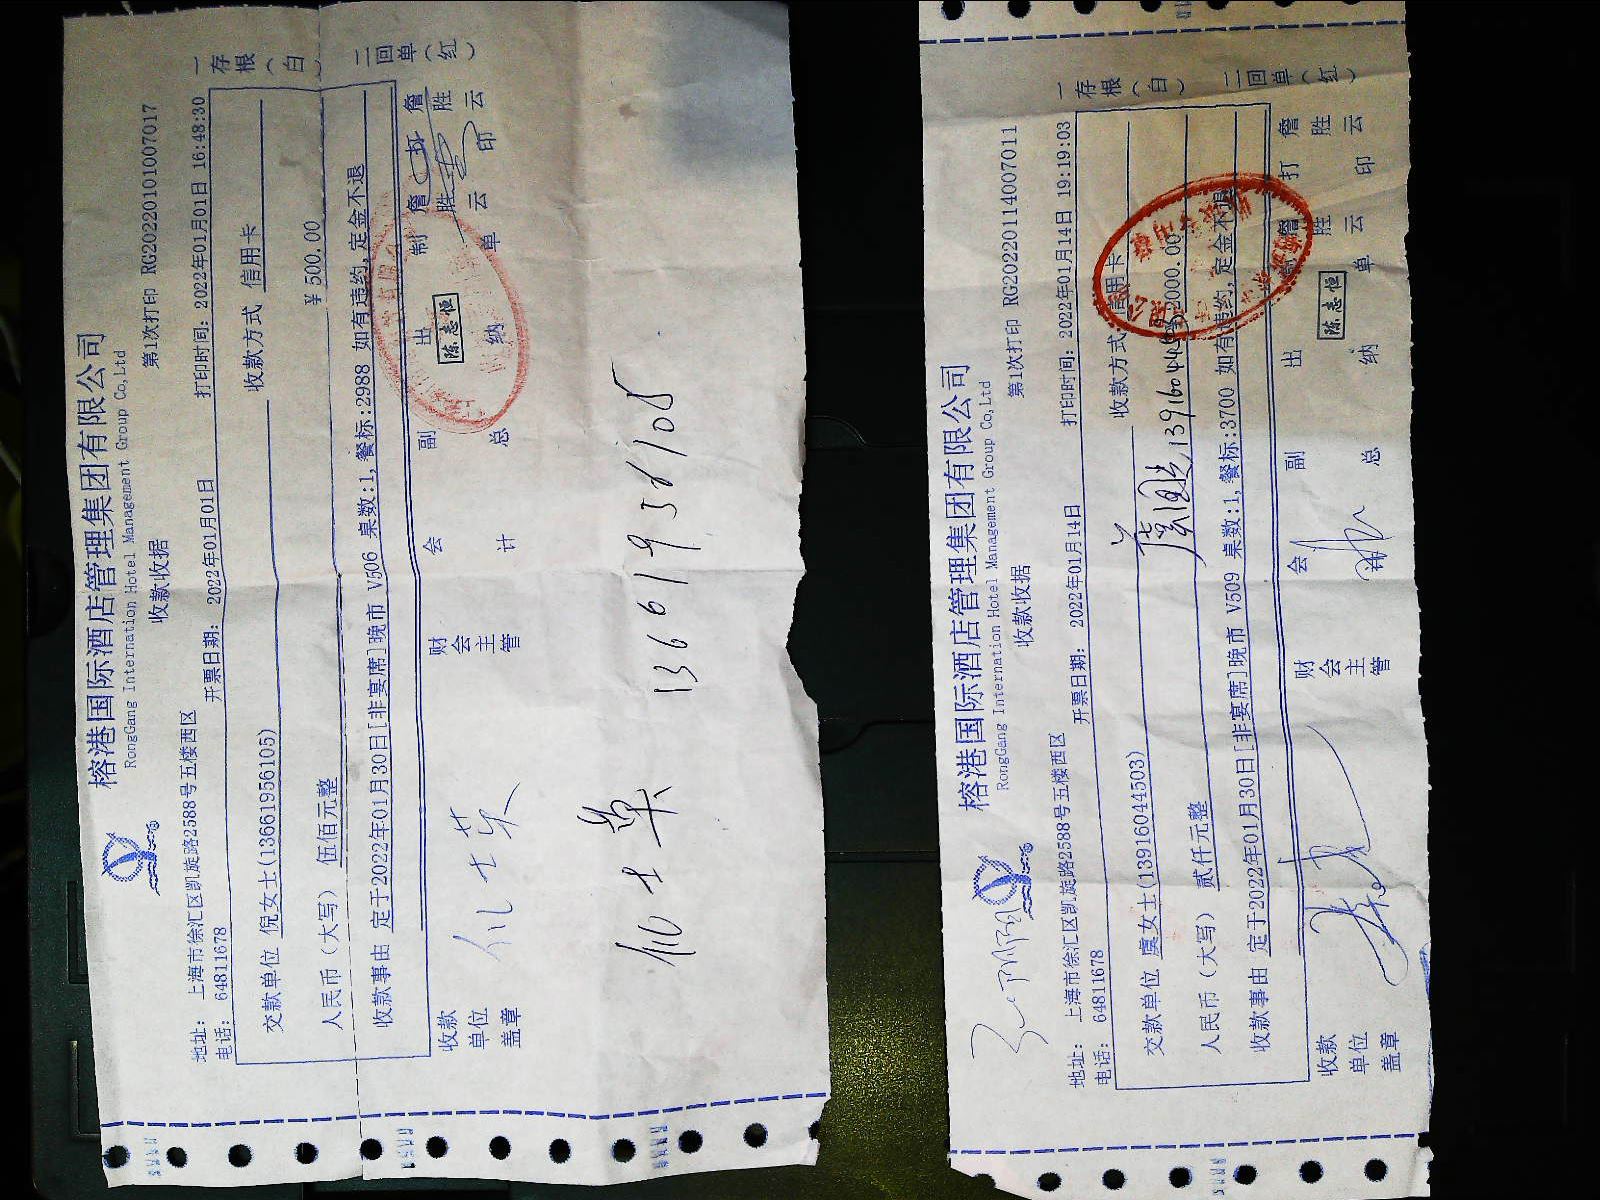 榕港国际酒店管理集团有限公司
RongGang Internation Hotel Management Group Co,Ltd
收款收据
第1次打印 RG20220101007017
地址： 上海市徐汇区凯旋路2588号五楼西区
电话： 64811678
开票日期： 2022年01月01日
打印时间： 2022年01月01日 16:48:30
交款单位 倪女士(13661956105)
收款方式 信用卡
人民币（大写） 伍佰元整
￥500.00
收款事由 定于2022年01月30日[非宴席]晚市 V506 桌数:1,餐标:2988 如有违约,定金不退
收款单位盖章
财会主管
会计
副总
出纳
陈志恒
制单
詹胜云
打印
詹胜云
一存根（白）
二回单（红）
13661956105
榕港国际酒店管理集团有限公司
RongGang Internation Hotel Management Group Co,Ltd
收款收据
第1次打印 RG20220114007011
地址： 上海市徐汇区凯旋路2588号五楼西区
电话： 64811678
开票日期： 2022年01月14日
打印时间： 2022年01月14日 19:19:03
交款单位 虞女士(13916044503)
收款方式 信用卡
人民币（大写） 贰仟元整
2000.00
收款事由 定于2022年01月30日[非宴席]晚市 V509 桌数:1,餐标:3700 如有违约,定金不退
收款单位盖章
财会主管
会
副总
出纳
陈志恒
单
詹胜云
打印
詹胜云
一存根（白）
二回单（红）